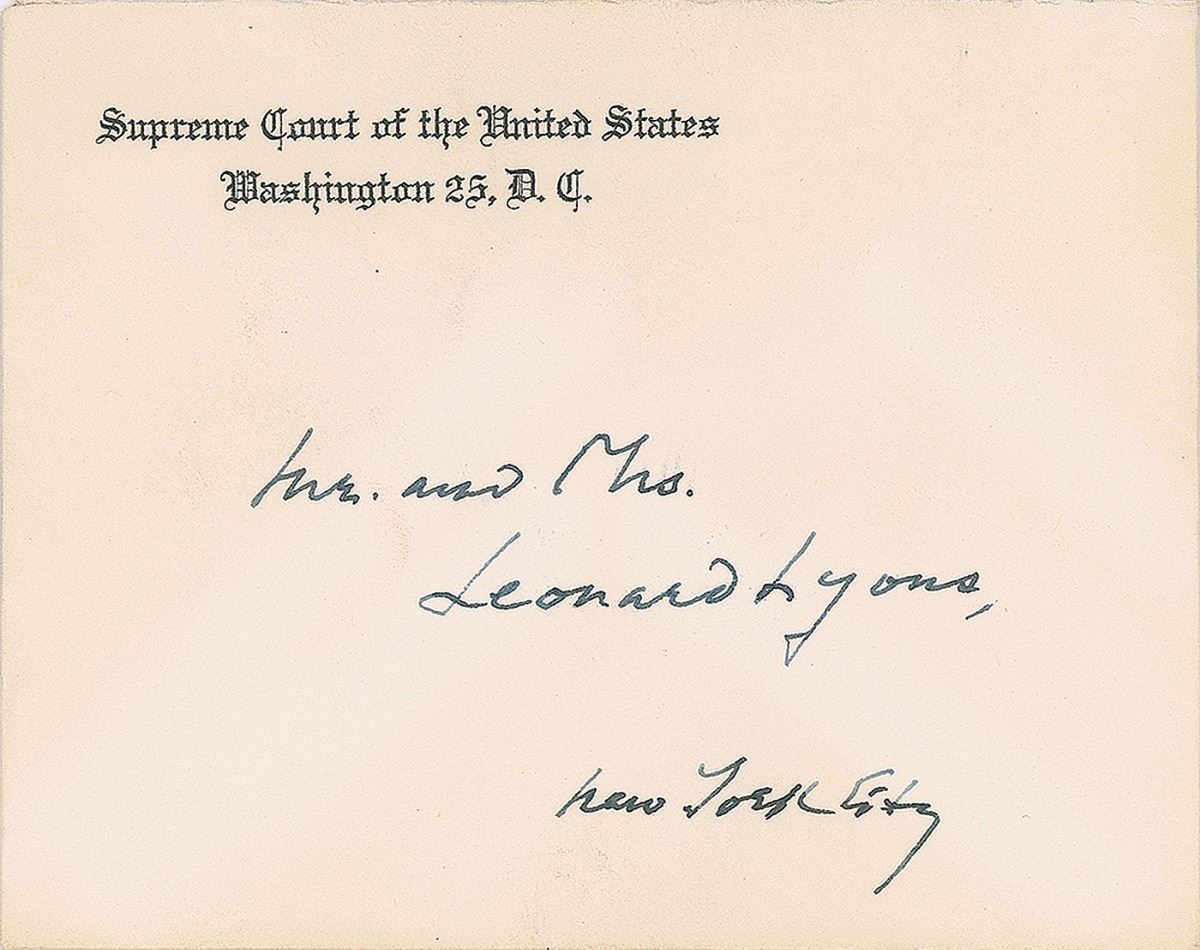 Supreme Court of the United States
Washington 25, D. C.
Mr. and Mrs.
Leonard Lyons,
New York City